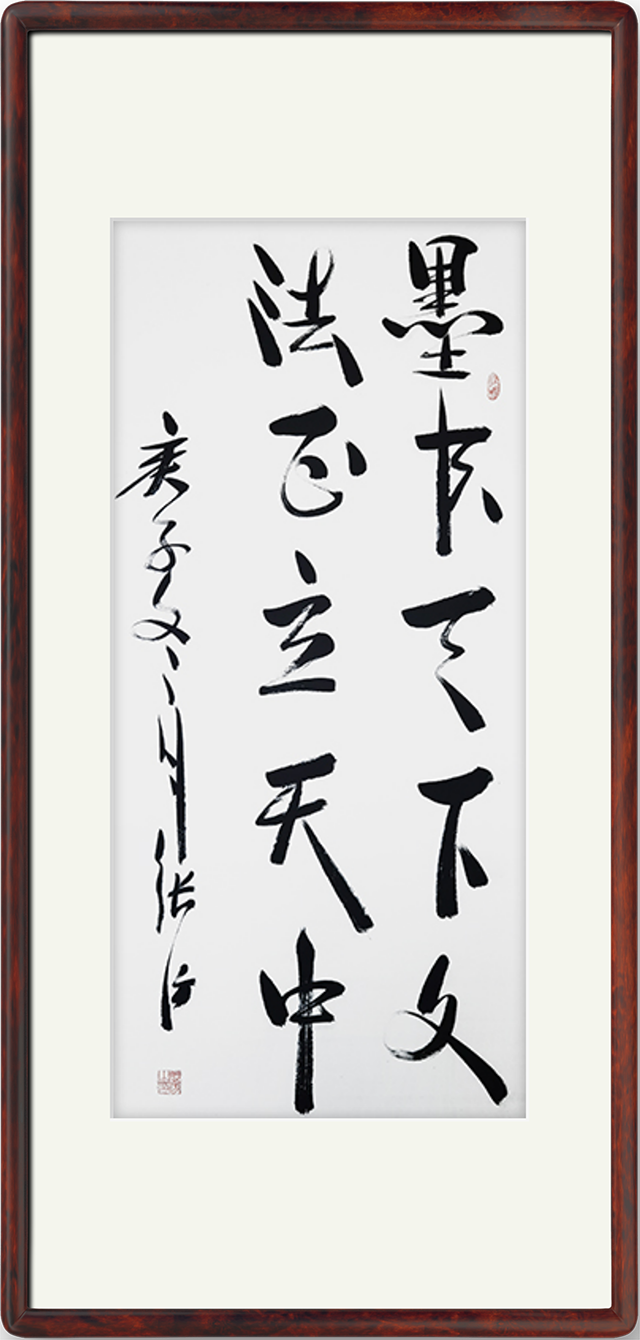 墨书天下文
法正立天中
庚子冬月张